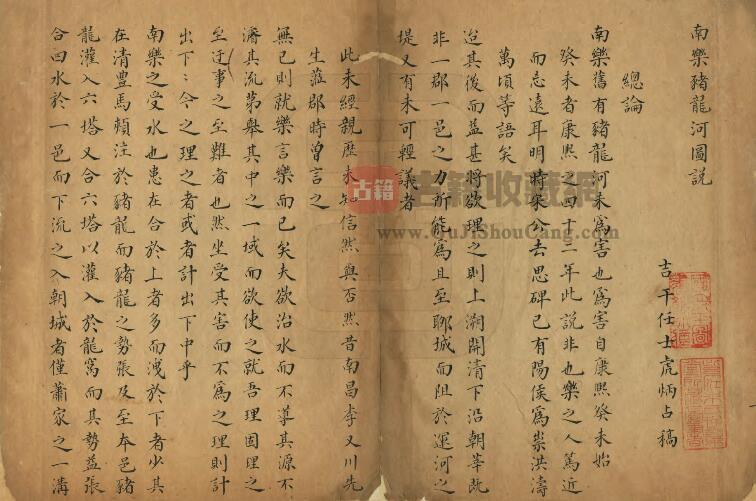 南樂豬龍河圖說
吉干任士虎炳占稿
總論
南樂舊有豬龍河未為害也為害自康熙癸未始
癸未者康熙之四十二年此說非也樂之人篤近
而忘遠耳明時宋公去思碑已有陽侯為祟洪濤
萬頃等語矣
迨其後而益甚將欲理之則上溯開清下沿朝莘既
非一郡一邑之力所能為且至聊城而阻於運河之
堤又有未可輕議者
此未經親歷未知信然與否然昔南昌李又川先
生蒞郡時曾言之
無已則就樂言樂而已矣夫欲治水而不導其源不
濬其流第舉其中之一域而欲使之就吾理固理之
至迂事之至難者也然坐受其害而不為之理則計
出下下今之理之者或者計出下中乎
南樂之受水也患在合於上者多而洩於下者少其
在清豐馬頰注於豬龍而豬龍之勢張及至本邑豬
龍灌入六塔又合六塔以灌入於龍窩而其勢益張
合四水於一邑而下流之入朝城者僅蕭家之一溝
古籍
古籍收藏網
www.GuJiShouCang.com